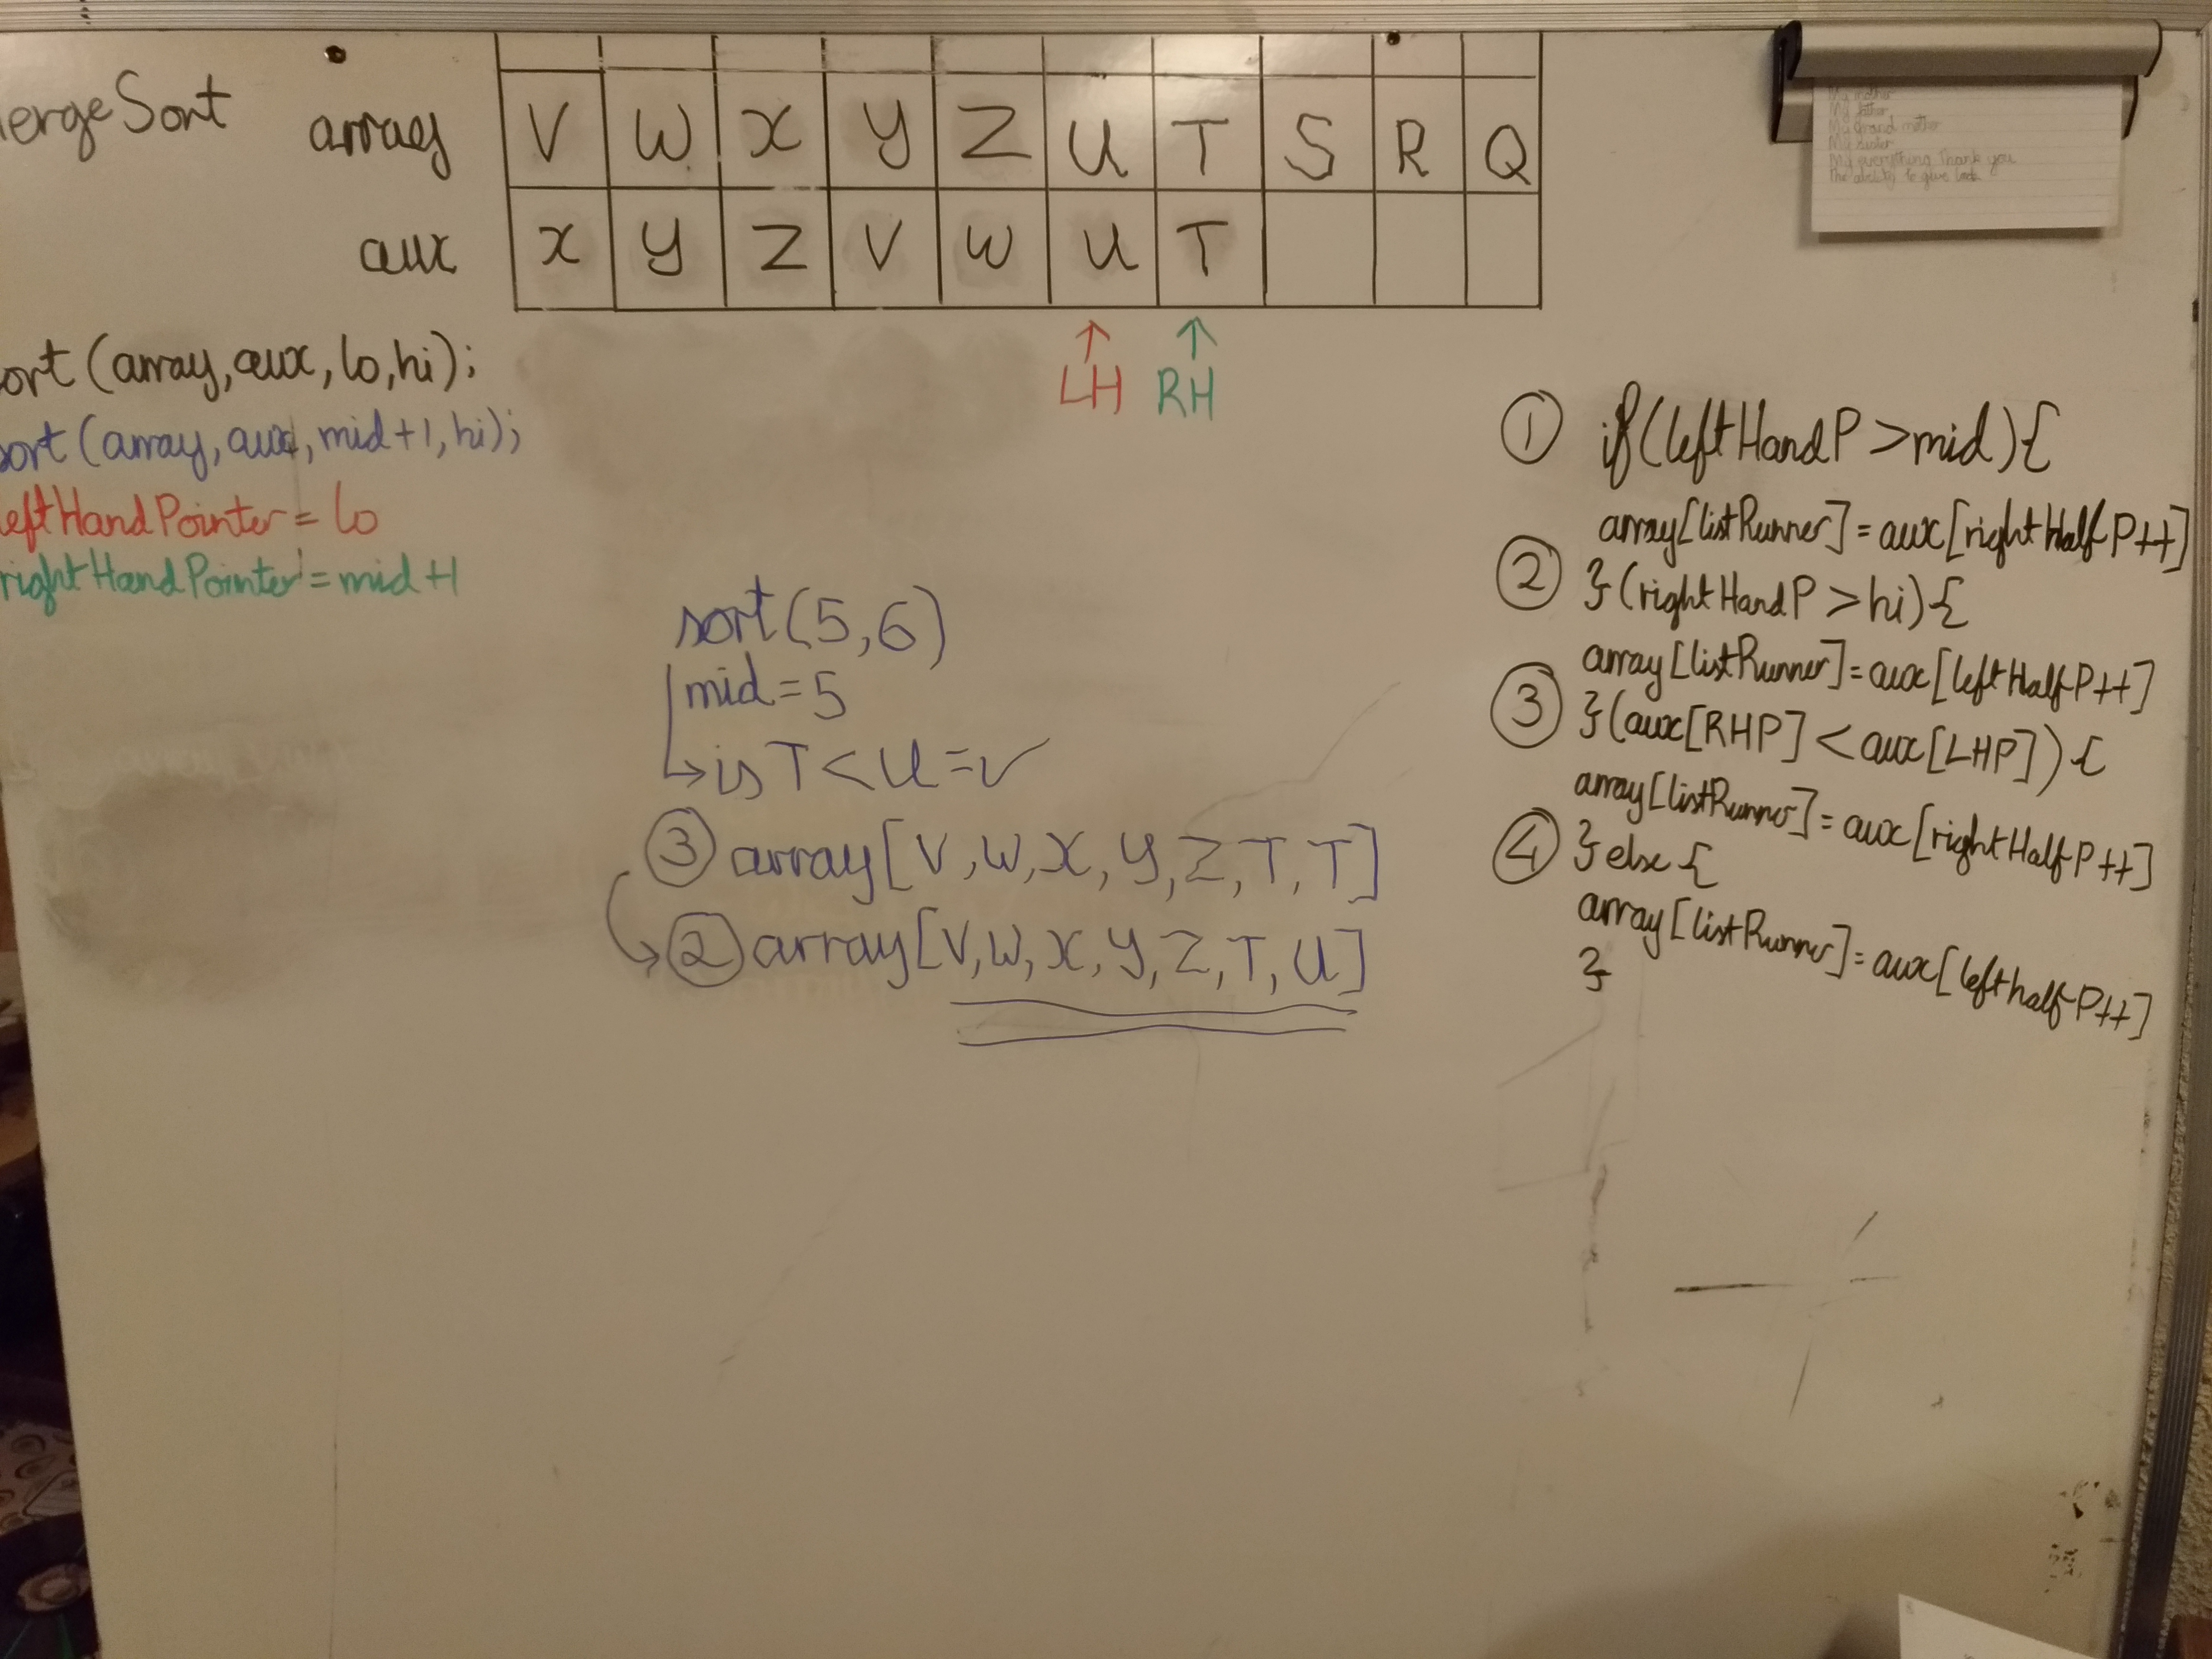 ergeSort
array V W X Y Z U T S R Q
aux X Y Z V W U T
LH RH
ort (array, aux, lo, hi);
ort (array, aux, mid+1, hi);
eftHandPointer = lo
rightHandPointer = mid+1
sort(5,6)
mid=5
→is T<U=✓
③ array[V,W,X,Y,Z,T,T]
② array[V,W,X,Y,Z,T,U]
① if(leftHandP >mid){
array[listRunner]=aux[rightHalfP++]
② }(rightHandP >hi){
array[listRunner]=aux[leftHalfP++]
③ }(aux[RHP] <aux[LHP]){
array[listRunner]=aux[rightHalfP++]
④ }else{
array[listRunner]=aux[lefthalfP++]
}
My mother
My father
My grand mother
My sister
My everything Thank you
The ability to give back